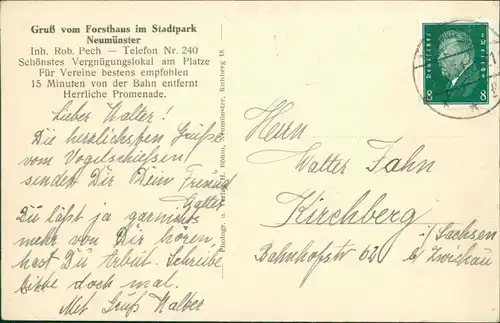 Gruß vom Forsthaus im Stadtpark
Neumünster
Inh. Rob. Pech — Telefon Nr. 240
Schönstes Vergnügungslokal am Platze
Für Vereine bestens empfohlen
15 Minuten von der Bahn entfernt
Herrliche Promenade.
Lieber Walter!
Die herzlichsten Grüße
vom Vogelschießen
sendet Dir Dein Freund
Walter
Du läßt ja garnichts
mehr von Dir hören,
hast Du Arbeit. Schreibe
bitte doch mal.
Mit Gruß Walter
Photogr. u. Verlag H. Höhm, Neumünster, Kuhberg 18
Deutsches Reich
8 8
Herrn
Walter Jahn
Kirchberg
i/Sachsen
Bahnhofstr 62 b/ Zwickau